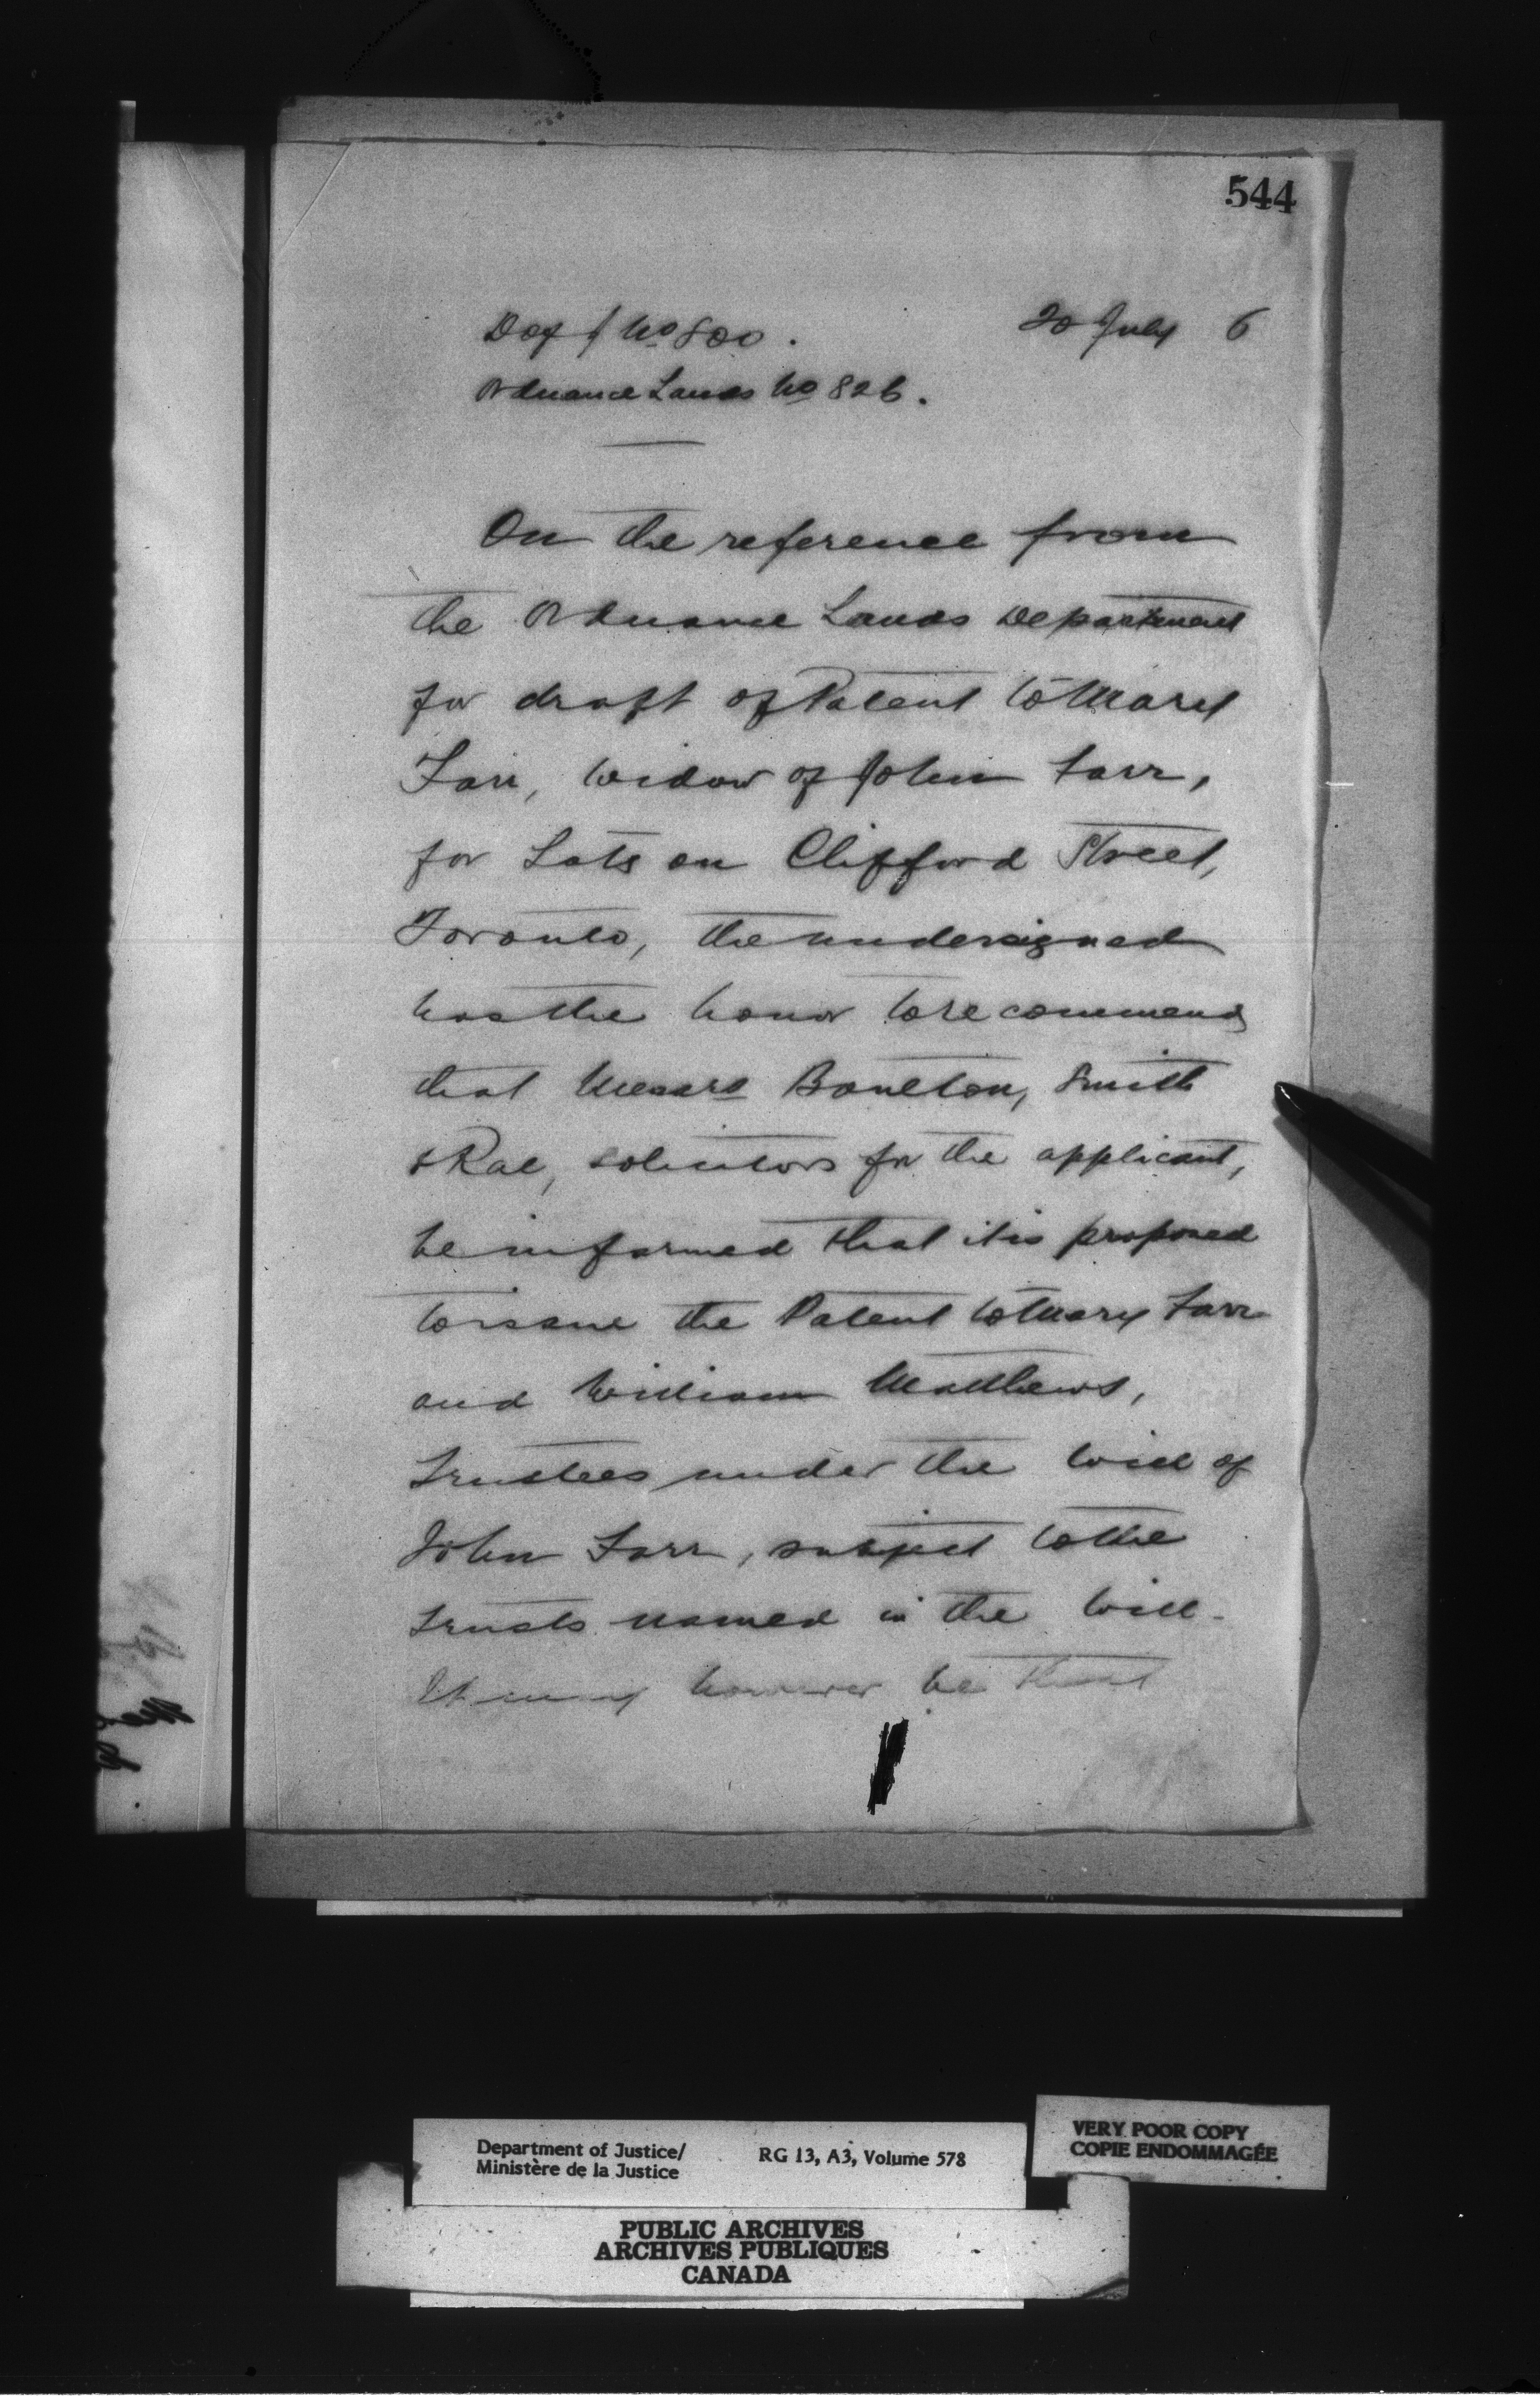 544
Dof J No 800.
20 July 6
Ordnance Lands No 826.
On the reference from
the Ordnance Lands Department
for draft of Patent to Mary
Farr, widow of John Farr,
for Lots on Clifford Street,
Toronto, the undersigned
has the honor to recommend
that Messrs Boulton, Smith
& Rae, solicitors for the applicant,
be informed that it is proposed
to issue the Patent to Mary Farr
and William Matthews,
Trustees under the will of
John Farr, subject to the
trusts named in the will.
It may however be that
Department of Justice/
Ministère de la Justice
RG 13, A3, Volume 578
VERY POOR COPY
COPIE ENDOMMAGÉE
PUBLIC ARCHIVES
ARCHIVES PUBLIQUES
CANADA